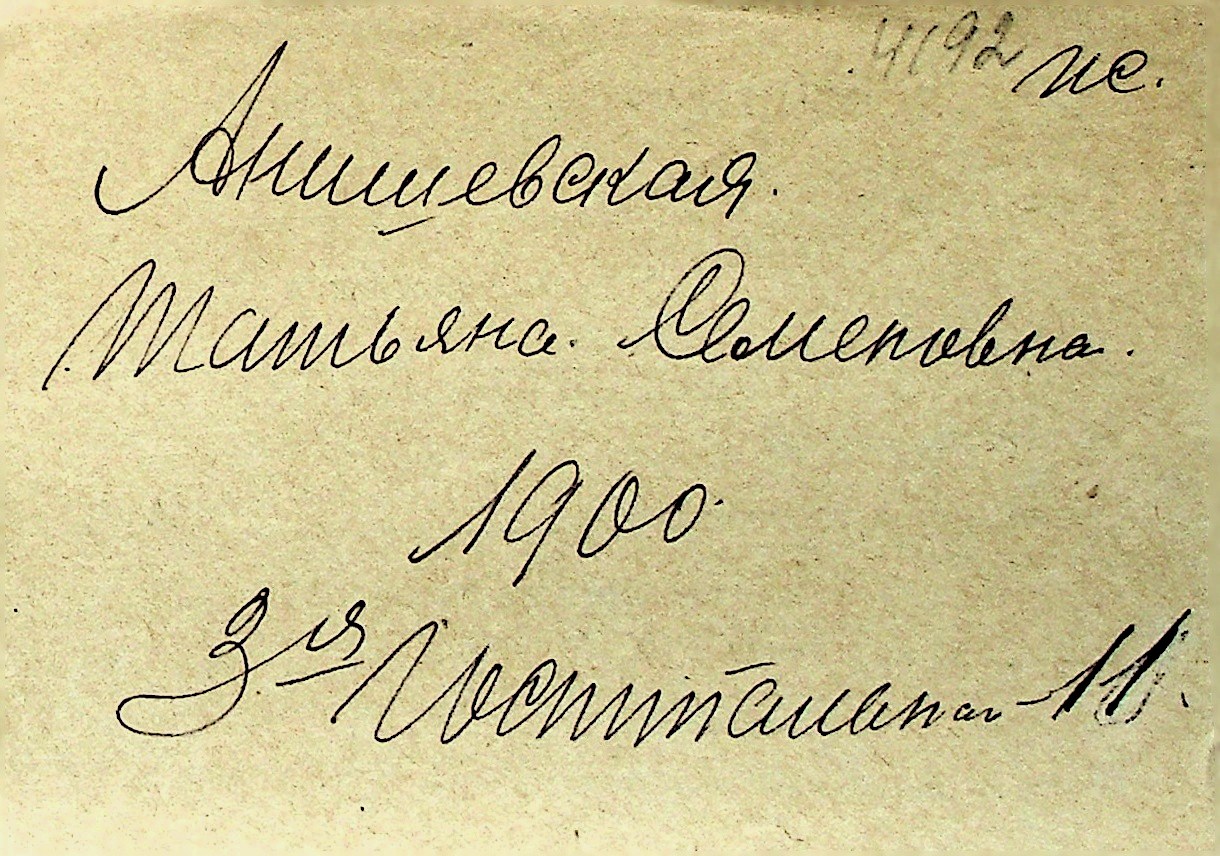 4192 пс.
Анишевская.
Татьяна. Семеновна.
1900
3ья Госпитальная 11.